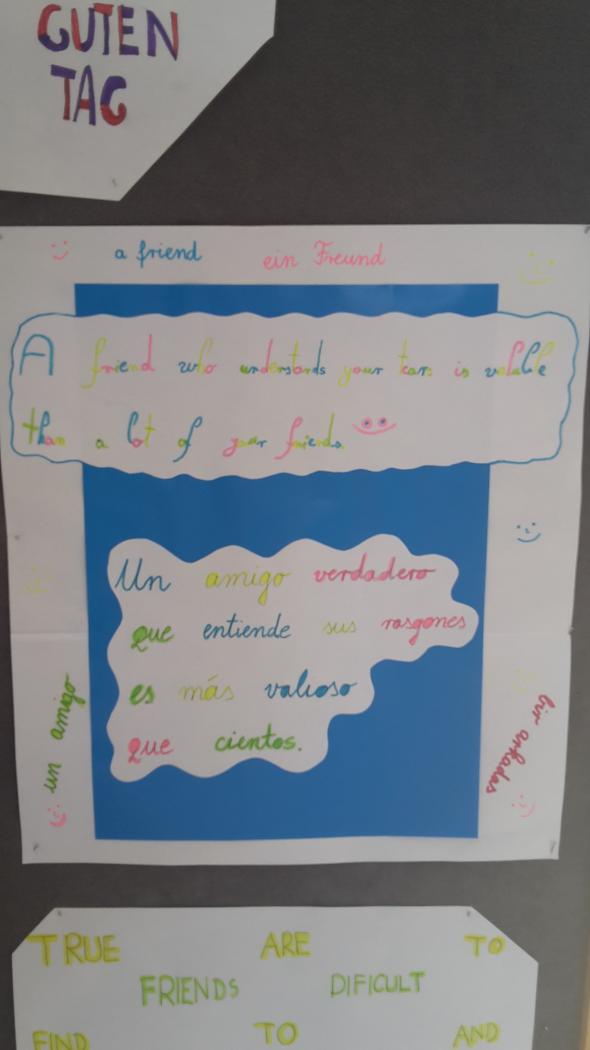 GUTEN
TAG
a friend ein Freund
A friend who understands your tears is valable
than a lot of your friends.
Un amigo verdadero
que entiende sus rasgones
es más valioso
que cientos.
un amigo
bir arkadas
TRUE ARE TO
FRIENDS DIFICULT
FIND TO AND